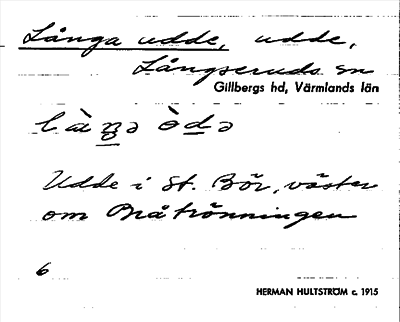 Långa udde, udde,
Långseruds sn
Gillbergs hd, Värmlands län
làŋə òdə
Udde i St. Bör, väster
om Bråtrönningen
6
HERMAN HULTSTRÖM c. 1915